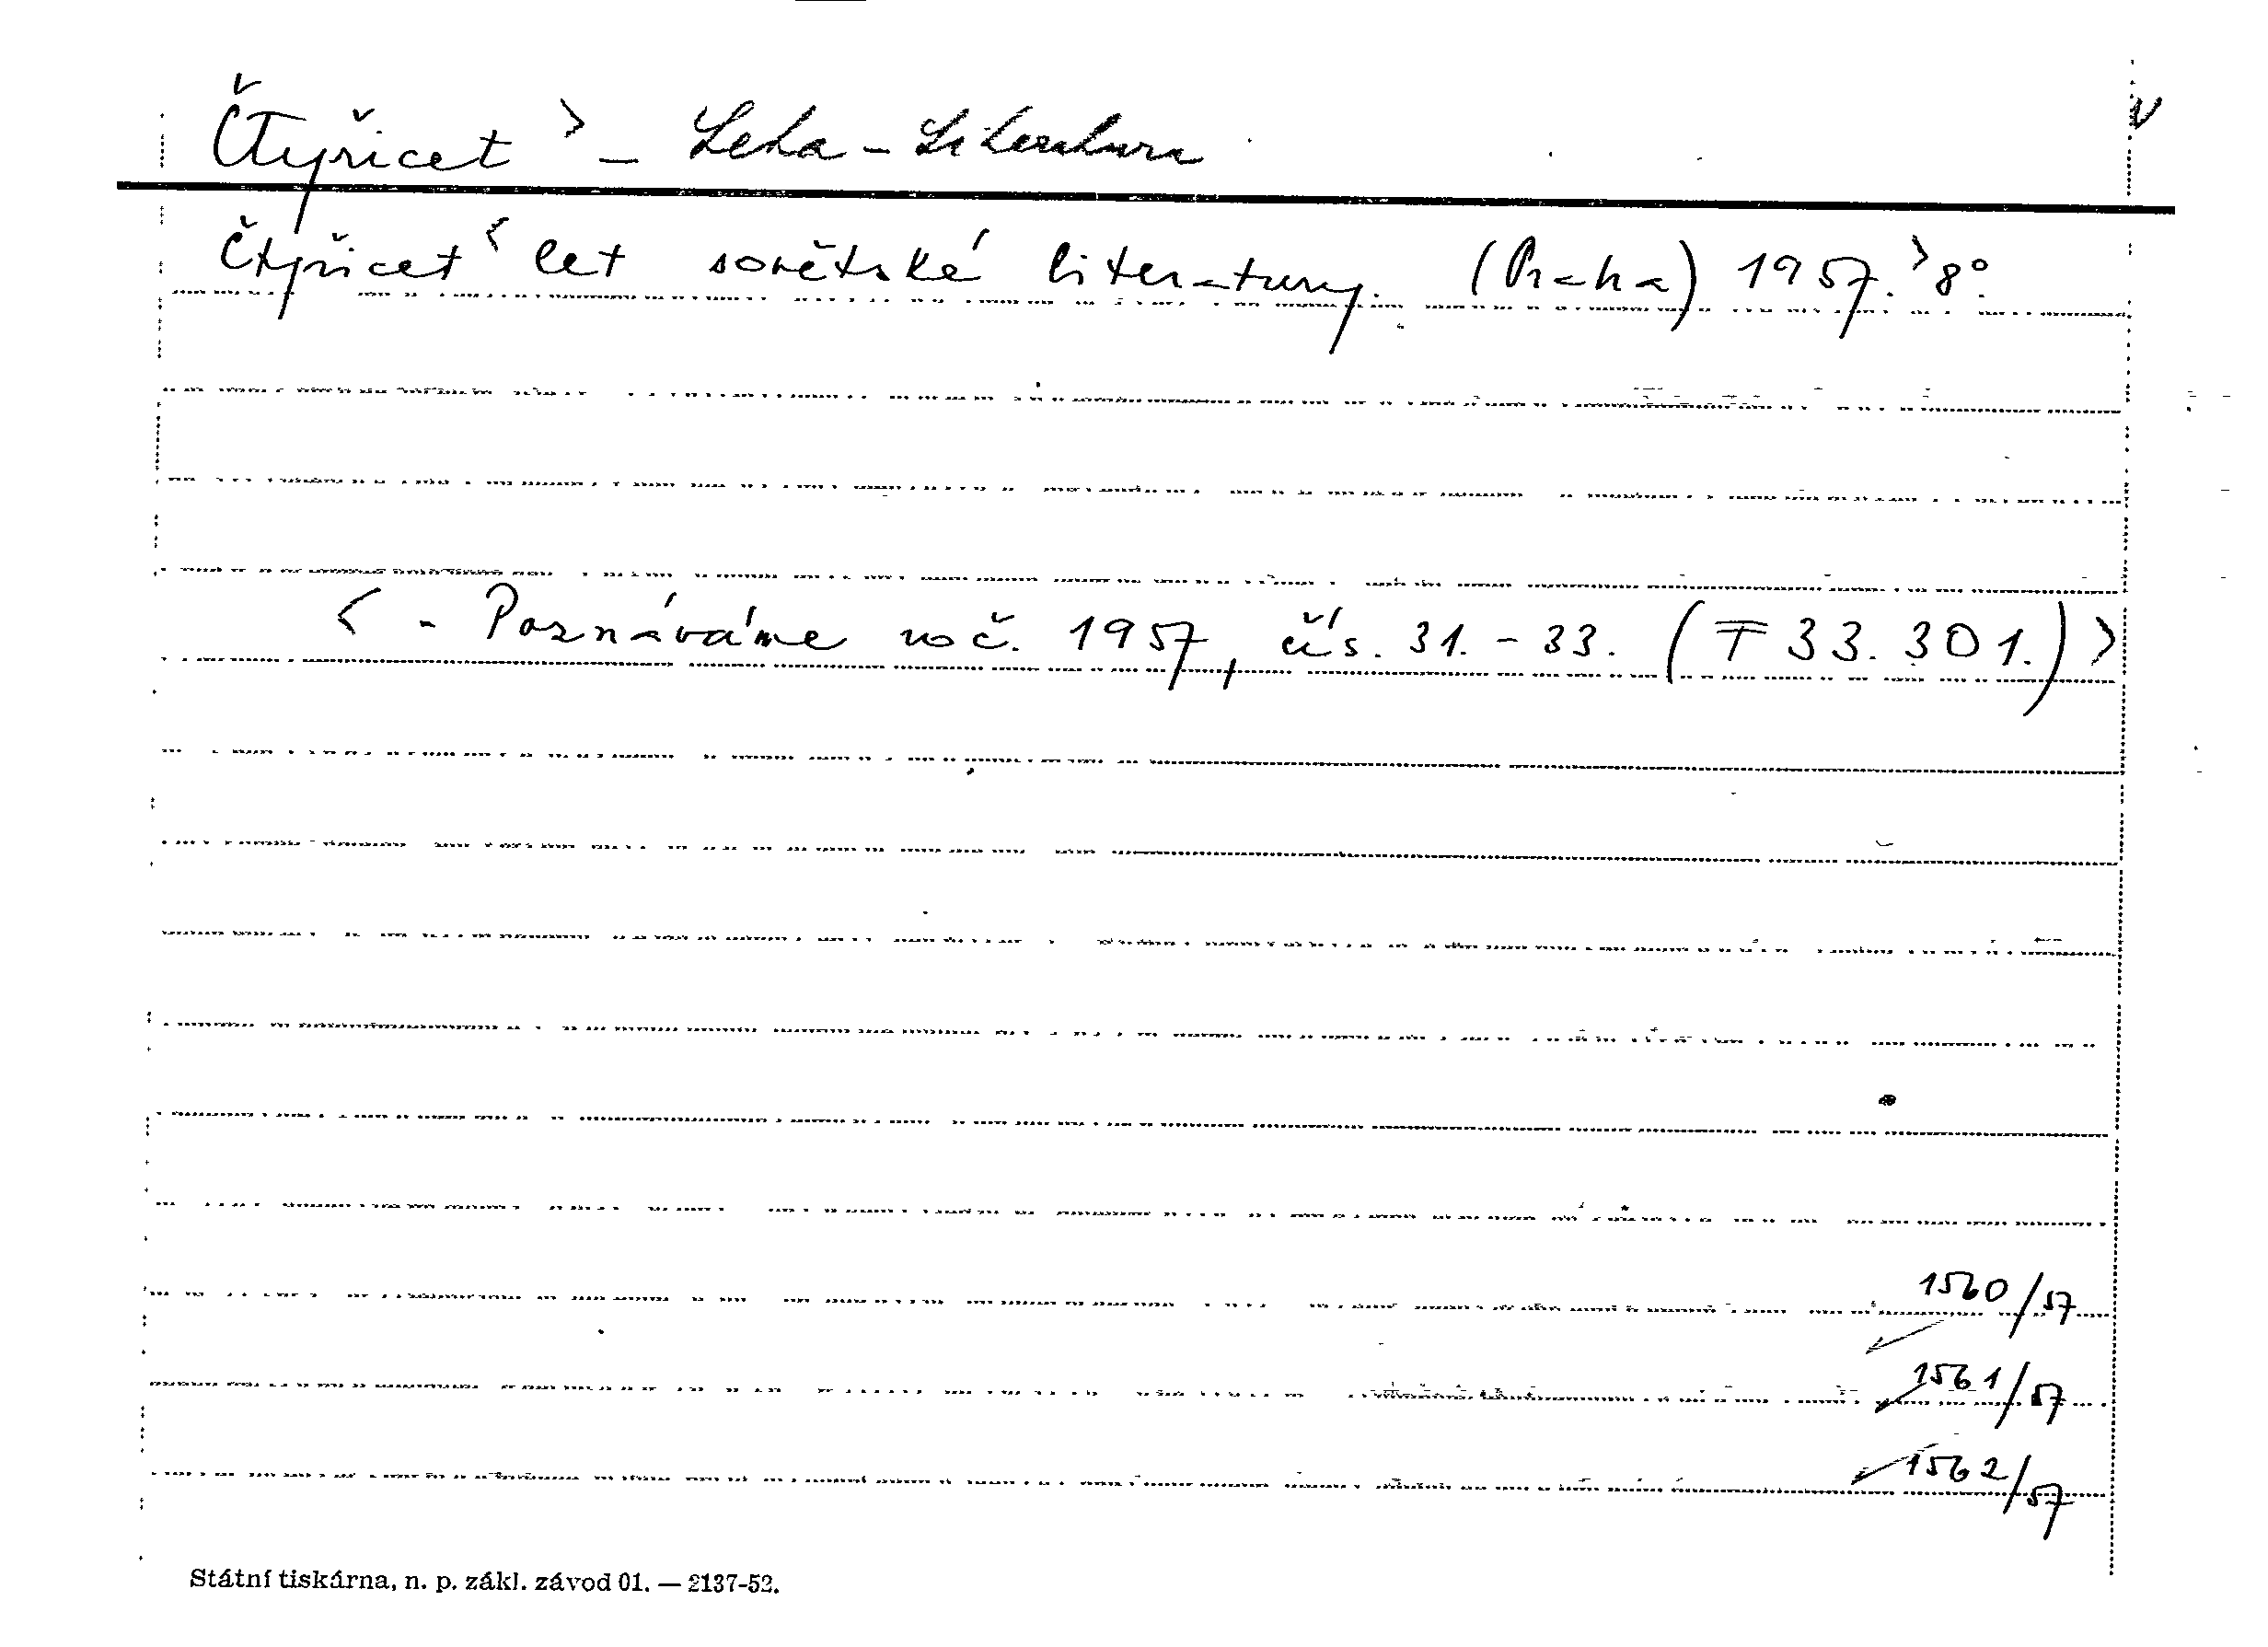 Čtyřicet > - Leta - Literatura
Čtyřicet < let sovětské literatury. (Praha) 1957. > 8°.
< - Poznáváme roč. 1957, čís. 31. - 33. (T 33.301.) >
1560/57
1561/57
1562/57
Státní tiskárna, n. p. zákl. závod 01. — 2137-52.